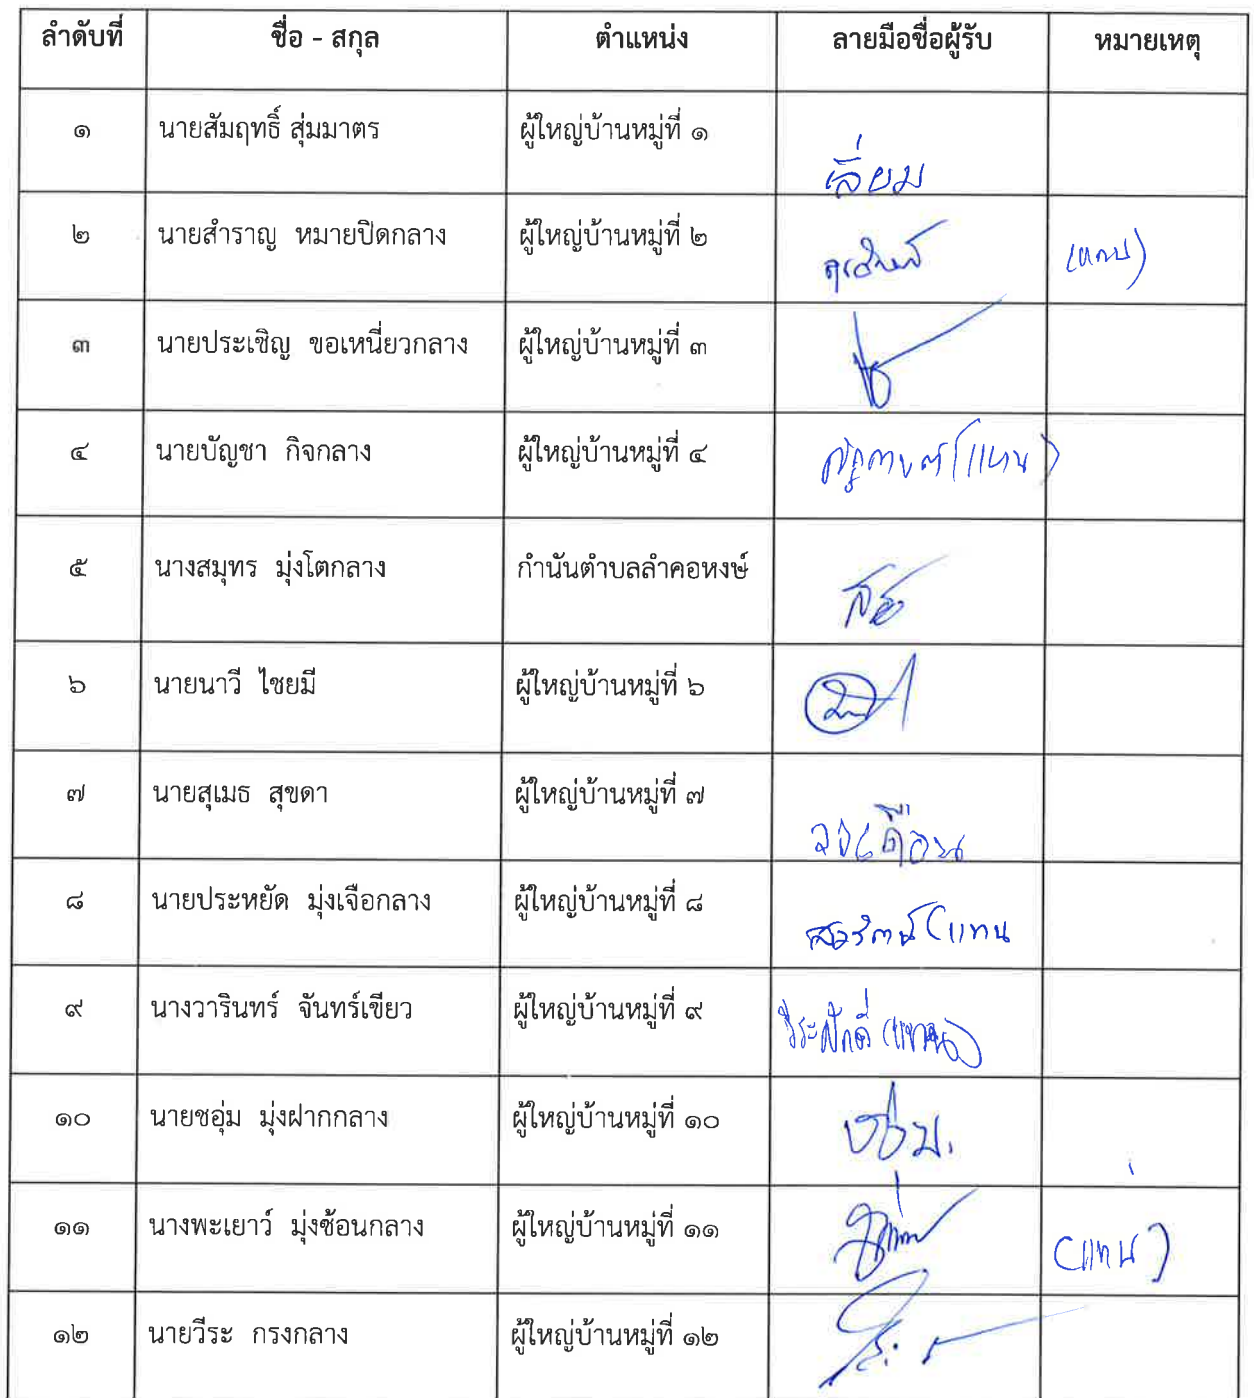 ลำดับที่ ชื่อ - สกุล ตำแหน่ง ลายมือชื่อผู้รับ หมายเหตุ
๑ นายสัมฤทธิ์ สุ่มมาตร ผู้ใหญ่บ้านหมู่ที่ ๑ เลี่ยม
๒ นายสำราญ หมายปิดกลาง ผู้ใหญ่บ้านหมู่ที่ ๒ (แทน)
๓ นายประเชิญ ขอเหนี่ยวกลาง ผู้ใหญ่บ้านหมู่ที่ ๓
๔ นายบัญชา กิจกลาง ผู้ใหญ่บ้านหมู่ที่ ๔ (แทน)
๕ นางสมุทร มุ่งโตกลาง กำนันตำบลลำคอหงษ์
๖ นายนาวี ไชยมี ผู้ใหญ่บ้านหมู่ที่ ๖
๗ นายสุเมธ สุขดา ผู้ใหญ่บ้านหมู่ที่ ๗
๘ นายประหยัด มุ่งเจือกลาง ผู้ใหญ่บ้านหมู่ที่ ๘ (แทน
๙ นางวารินทร์ จันทร์เขียว ผู้ใหญ่บ้านหมู่ที่ ๙ วีระศักดิ์ (แทน)
๑๐ นายชอุ่ม มุ่งฝากกลาง ผู้ใหญ่บ้านหมู่ที่ ๑๐
๑๑ นางพะเยาว์ มุ่งซ้อนกลาง ผู้ใหญ่บ้านหมู่ที่ ๑๑ (แทน)
๑๒ นายวีระ กรงกลาง ผู้ใหญ่บ้านหมู่ที่ ๑๒